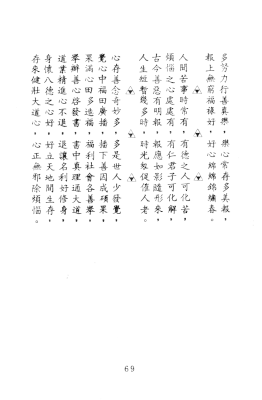 多努力行善真樂，樂心常存多美報，
報上無窮福祿好，好心綿綿錦繡春。
人間苦事時常有，有德之人可化苦，
煩惱之心處處有，有仁君子可化解，
古今善惡有明報，報應如影隨形來，
人生短暫幾多時，時光忽促催人老。
心存善念奇妙多，多是世人少發覺，
覺心中福田廣播，播下善因成碩果，
果滿心田多造福，福利社會各善舉，
舉辦善心啓發書，書中真理通大道，
道業精進心不退，退讓名利好修身，
身懷八德之心好，好立天地間生存，
存來健壯大道心，心正無邪除煩惱。
69